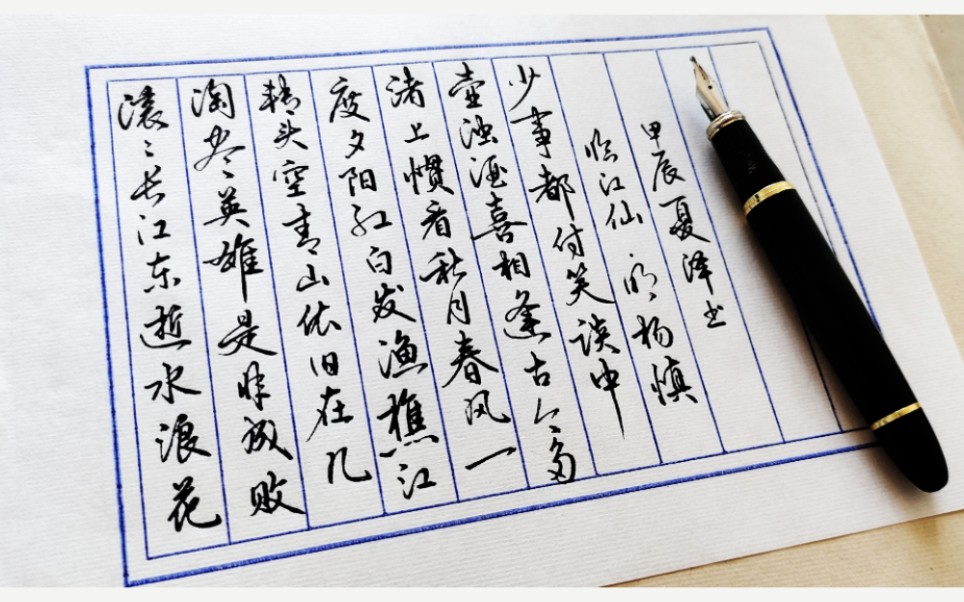 滚々长江东逝水浪花
淘尽英雄是非成败
转头空青山依旧在几
度夕阳红白发渔樵江
渚上惯看秋月春风一
壶浊酒喜相逢古今多
少事都付笑谈中
临江仙 明 杨慎
甲辰夏泽书